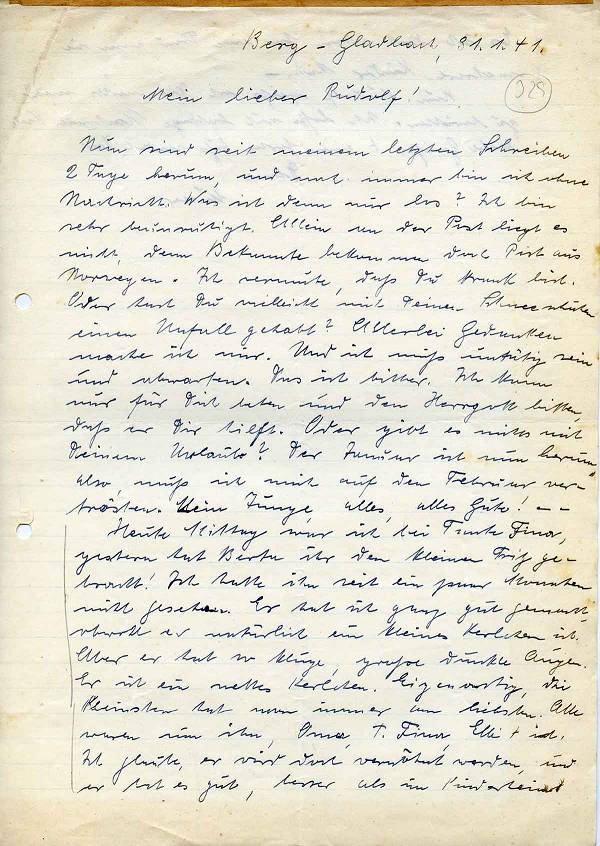 Berg-Gladbach, 31.1.41.
929
Mein lieber Rudolf!
Nun sind seit meinem letzten Schreiben
2 Tage herum, und noch immer bin ich ohne
Nachricht. Was ist denn nur los? Ich bin
sehr beunruhigt. Allein an der Post liegt es
nicht, denn Bekannte bekommen doch Post aus
Norwegen. Ich vermute, daß Du krank bist.
Oder hast Du vielleicht mit Deinen Schneeschuhen
einen Unfall gehabt? Allerlei Gedanken
mache ich mir. Und ich muß untätig sein
und abwarten. Das ist bitter. Ich kann
nur für Dich beten und den Herrgott bitten,
daß er Dir hilft. Oder gibt es nichts mit
Deinem Urlaub? Der Januar ist nun herum,
also, muß ich mich auf den Februar ver-
trösten. Mein Junge, alles, alles Gute! – –
Heute Mittag war ich bei Tante Fina,
gestern hat Berta ihr den kleinen Fritz ge-
bracht! Ich hatte ihn seit ein paar Monaten
nicht gesehen. Er hat sich ganz gut gemacht,
obwohl er natürlich ein kleines Kerlchen ist.
Aber er hat so kluge, große dunkle Augen.
Er ist ein nettes Kerlchen. Eigenartig, die
Kleinsten hat man immer am liebsten. Alle
waren um ihn, Oma, T. Fina, Elli + ich.
Ich glaube, er wird dort verwöhnt werden, und
er hat es gut, besser als im Kinderheim